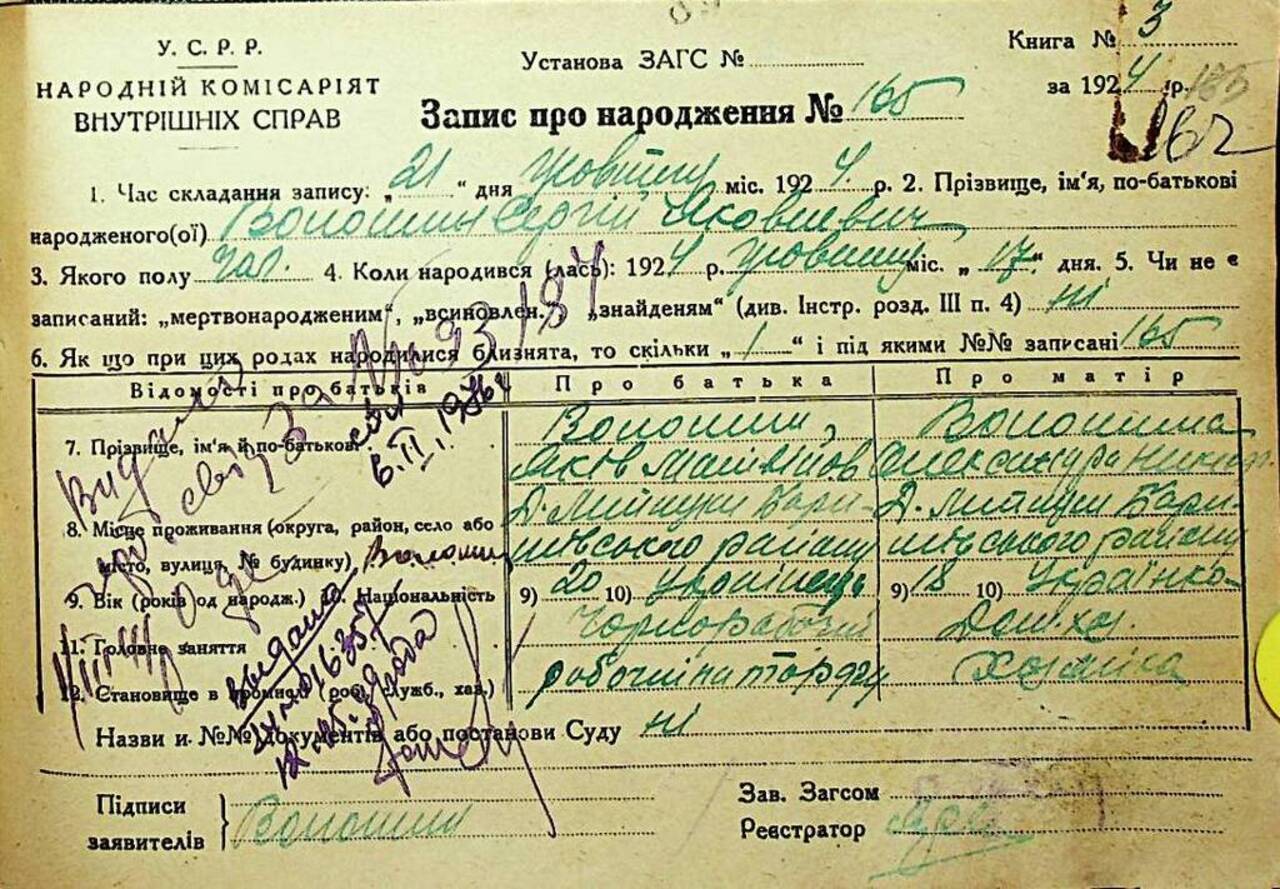 У. С. Р. Р.
НАРОДНІЙ КОМІСАРІЯТ
ВНУТРІШНІХ СПРАВ
Установа ЗАГС №
Книга № 3
за 1924 р. 165
162
Запис про народження № 165
1. Час складання запису: „21“ дня жовтня міс. 1924. р. 2. Прізвище, ім'я, по-батькові
народженого(ої) Волошин Сергій Яковлевич
3. Якого полу чол. 4. Коли народився (лась): 1924 р. жовтня міс. „17“ дня. 5. Чи не є
записаний: „мертвонародженим“, „всиновлен.“ „знайденям“ (див. Інстр. розд. III п. 4) ні
6. Як що при цих родах народилися близнята, то скільки „1“ і під якими №№ записані 165
Відомості про батьків Про батька Про матір
7. Прізвище, ім'я й по-батькові Волошин, Волошина
Яків Олександра
8. Місце проживання (округа, район, село або місто, вулиця, № будинку) Д. Бари- Д. Бари-
шівського району шівського району
9. Вік (років од народж.) 10. Національність 9) 20 10) Українець 9) 18 10) Українка
11. Головне заняття Чорнорабочий Дом. хоз.
12. Становище в промислі (роб., служб., хаз.) робочий на Хозяйка
Назви и №№ документів або постанови Суду ні
Видано
свід. за №
6.II.1976
выдано
Підписи
заявителів Волошин
Зав. Загсом
Реєстратор